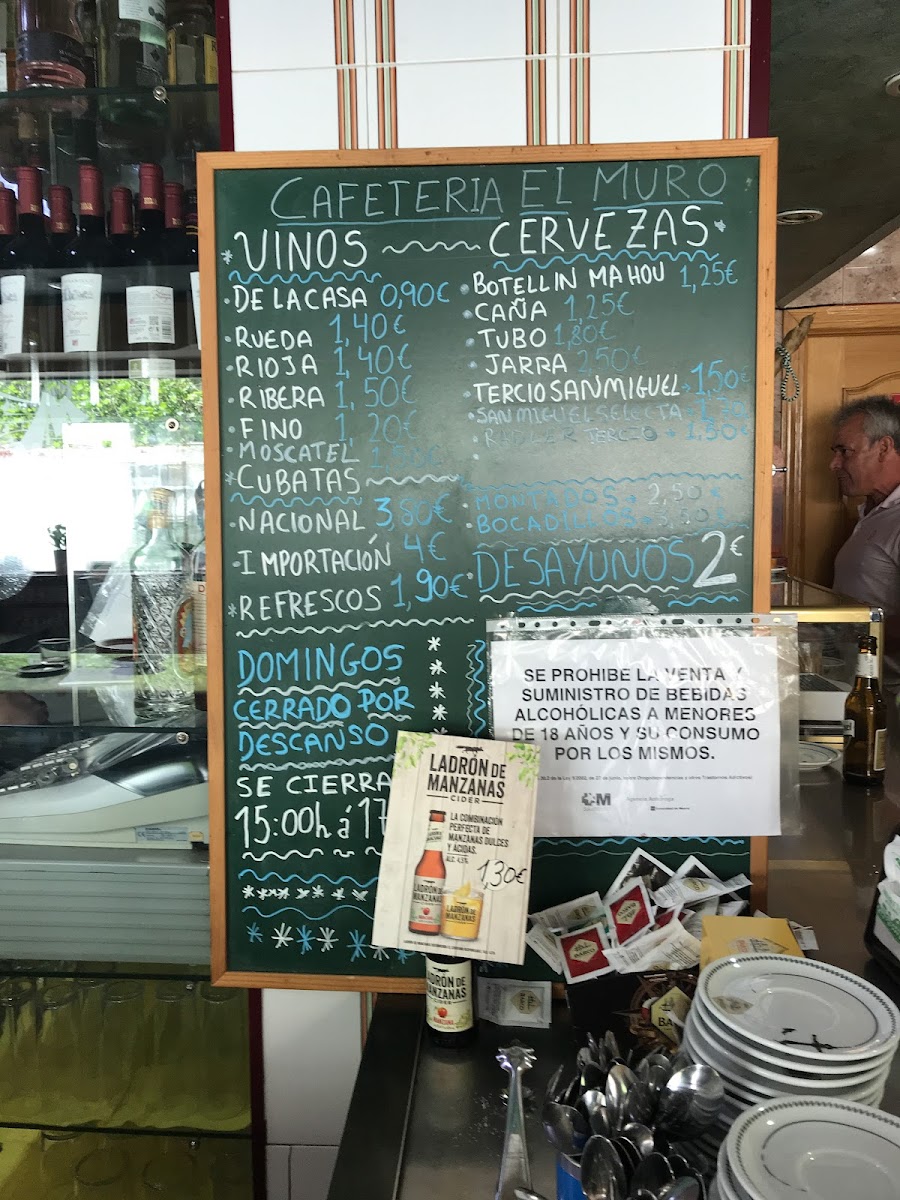 CAFETERIA EL MURO
*VINOS
• DE LA CASA 0,90€
• RUEDA 1,40€
• RIOJA 1,40€
• RIBERA 1,50€
• FINO 1,20€
• MOSCATEL
*CUBATAS
• NACIONAL 3,80€
• IMPORTACIÓN 4€
*REFRESCOS 1,90€
DOMINGOS
CERRADO POR
DESCANSO
SE CIERRA
15:00h á 17
CERVEZAS*
• BOTELLIN MAHOU 1,25€
• CAÑA 1,25€
• TUBO 1,80€
• JARRA 2,50€
TERCIO SAN MIGUEL 1,50€
SAN MIGUEL SELECTA
RADLER TERCIO 1,50€
MONTADOS 2,50€
• BOCADILLOS 3,50€
• DESAYUNOS 2€
SE PROHIBE LA VENTA Y
SUMINISTRO DE BEBIDAS
ALCOHÓLICAS A MENORES
DE 18 AÑOS Y SU CONSUMO
POR LOS MISMOS.
LADRÓN DE
MANZANAS
CIDER
LA COMBINACIÓN
PERFECTA DE
MANZANAS DULCES
Y ÁCIDAS.
ALC. 4,5%
1,30€
LADRÓN DE
MANZANAS
LADRÓN DE
MANZANAS
LADRÓN DE
MANZANAS